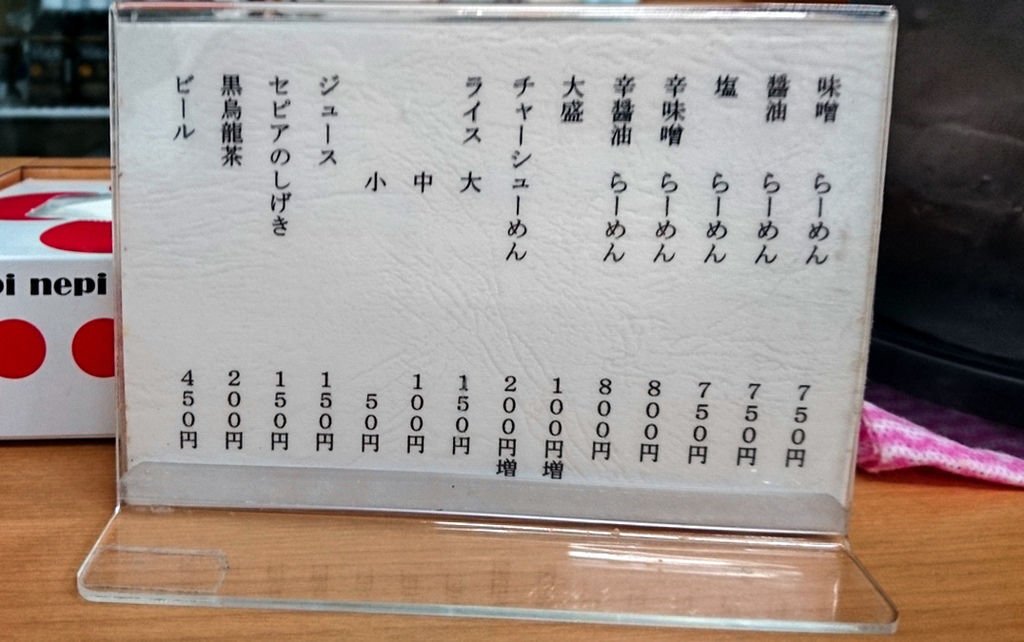 味噌 らーめん 750円
醤油 らーめん 750円
塩 らーめん 750円
辛味噌 らーめん 800円
辛醤油 らーめん 800円
大盛 100円増
チャーシューめん 200円増
ライス 大 150円
中 100円
小 50円
ジュース 150円
セピアのしげき 150円
黒烏龍茶 200円
ビール 450円
pi nepi